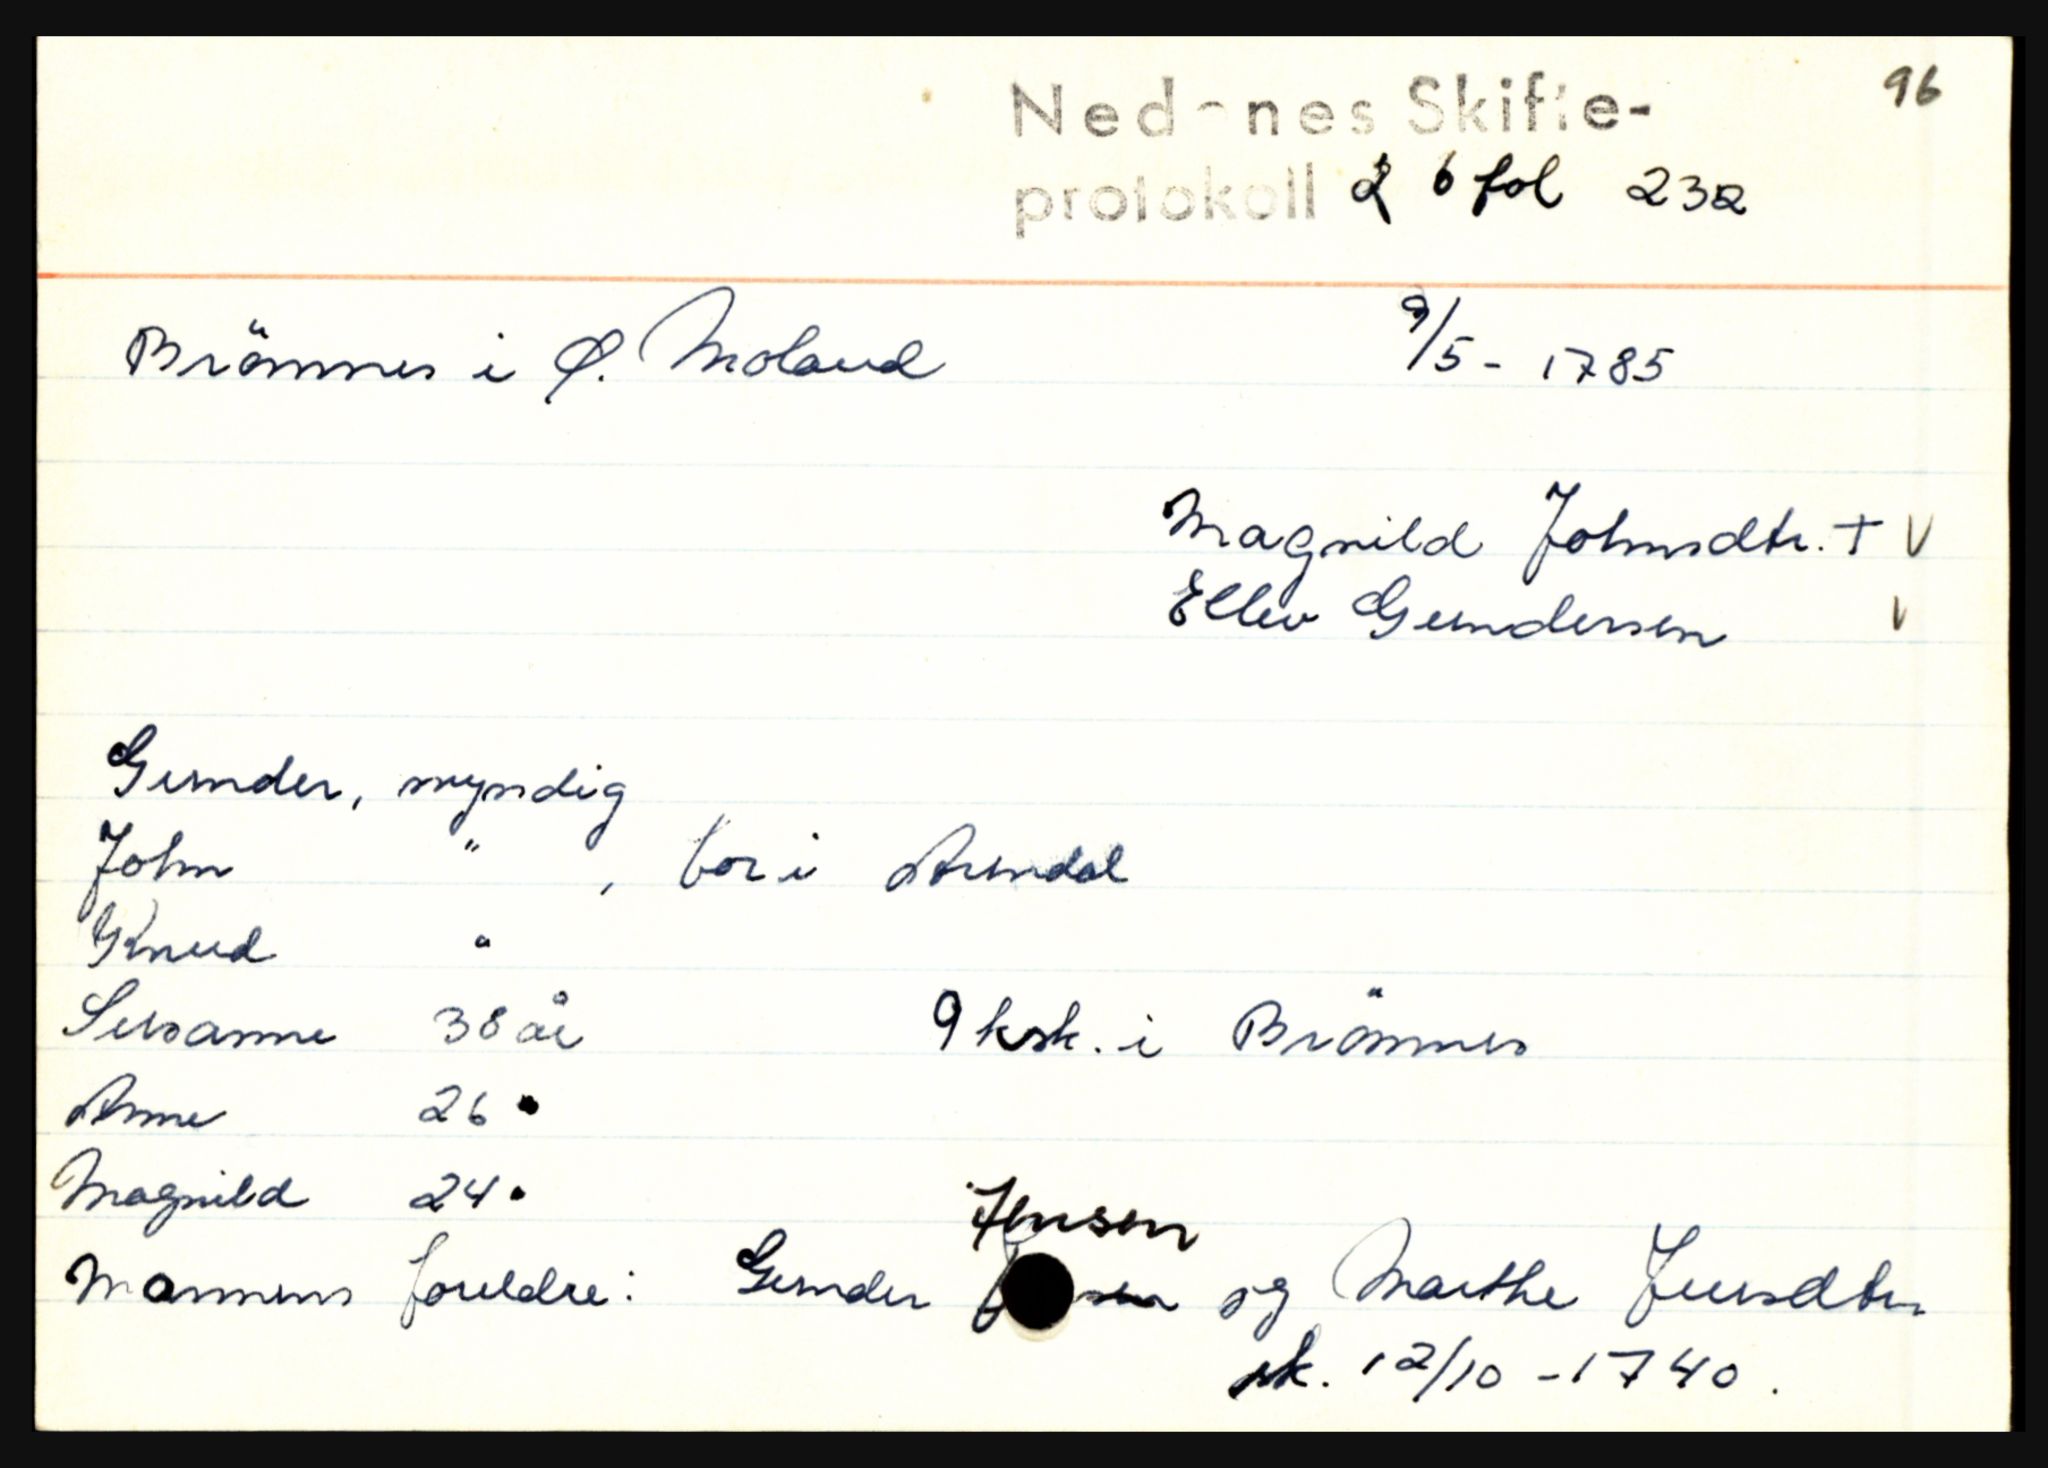 96
Nedenes Skifte-
protokoll 2 6 fol 232
Brömnes i Ø. Moland 9/5 - 1785
Magnild Johnsdtr. + V
Ellev Gundersen V
Gunder, myndig
John " , bor i Arendal
Knud "
Susanne 38 år 9 ksk. i Brömnes
Anne 26 "
Magnild 24 "
Jensen
Mannens foreldre: Gunder og Marthe Juursdtr
sk. 12/10 - 1740.